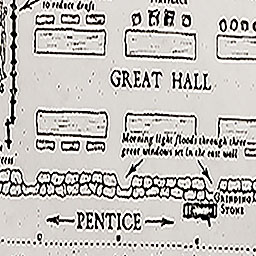 to reduce draft
GREAT HALL
Morning light floods through three
great windows set in the east wall
GRINDING
STONE
PENTICE